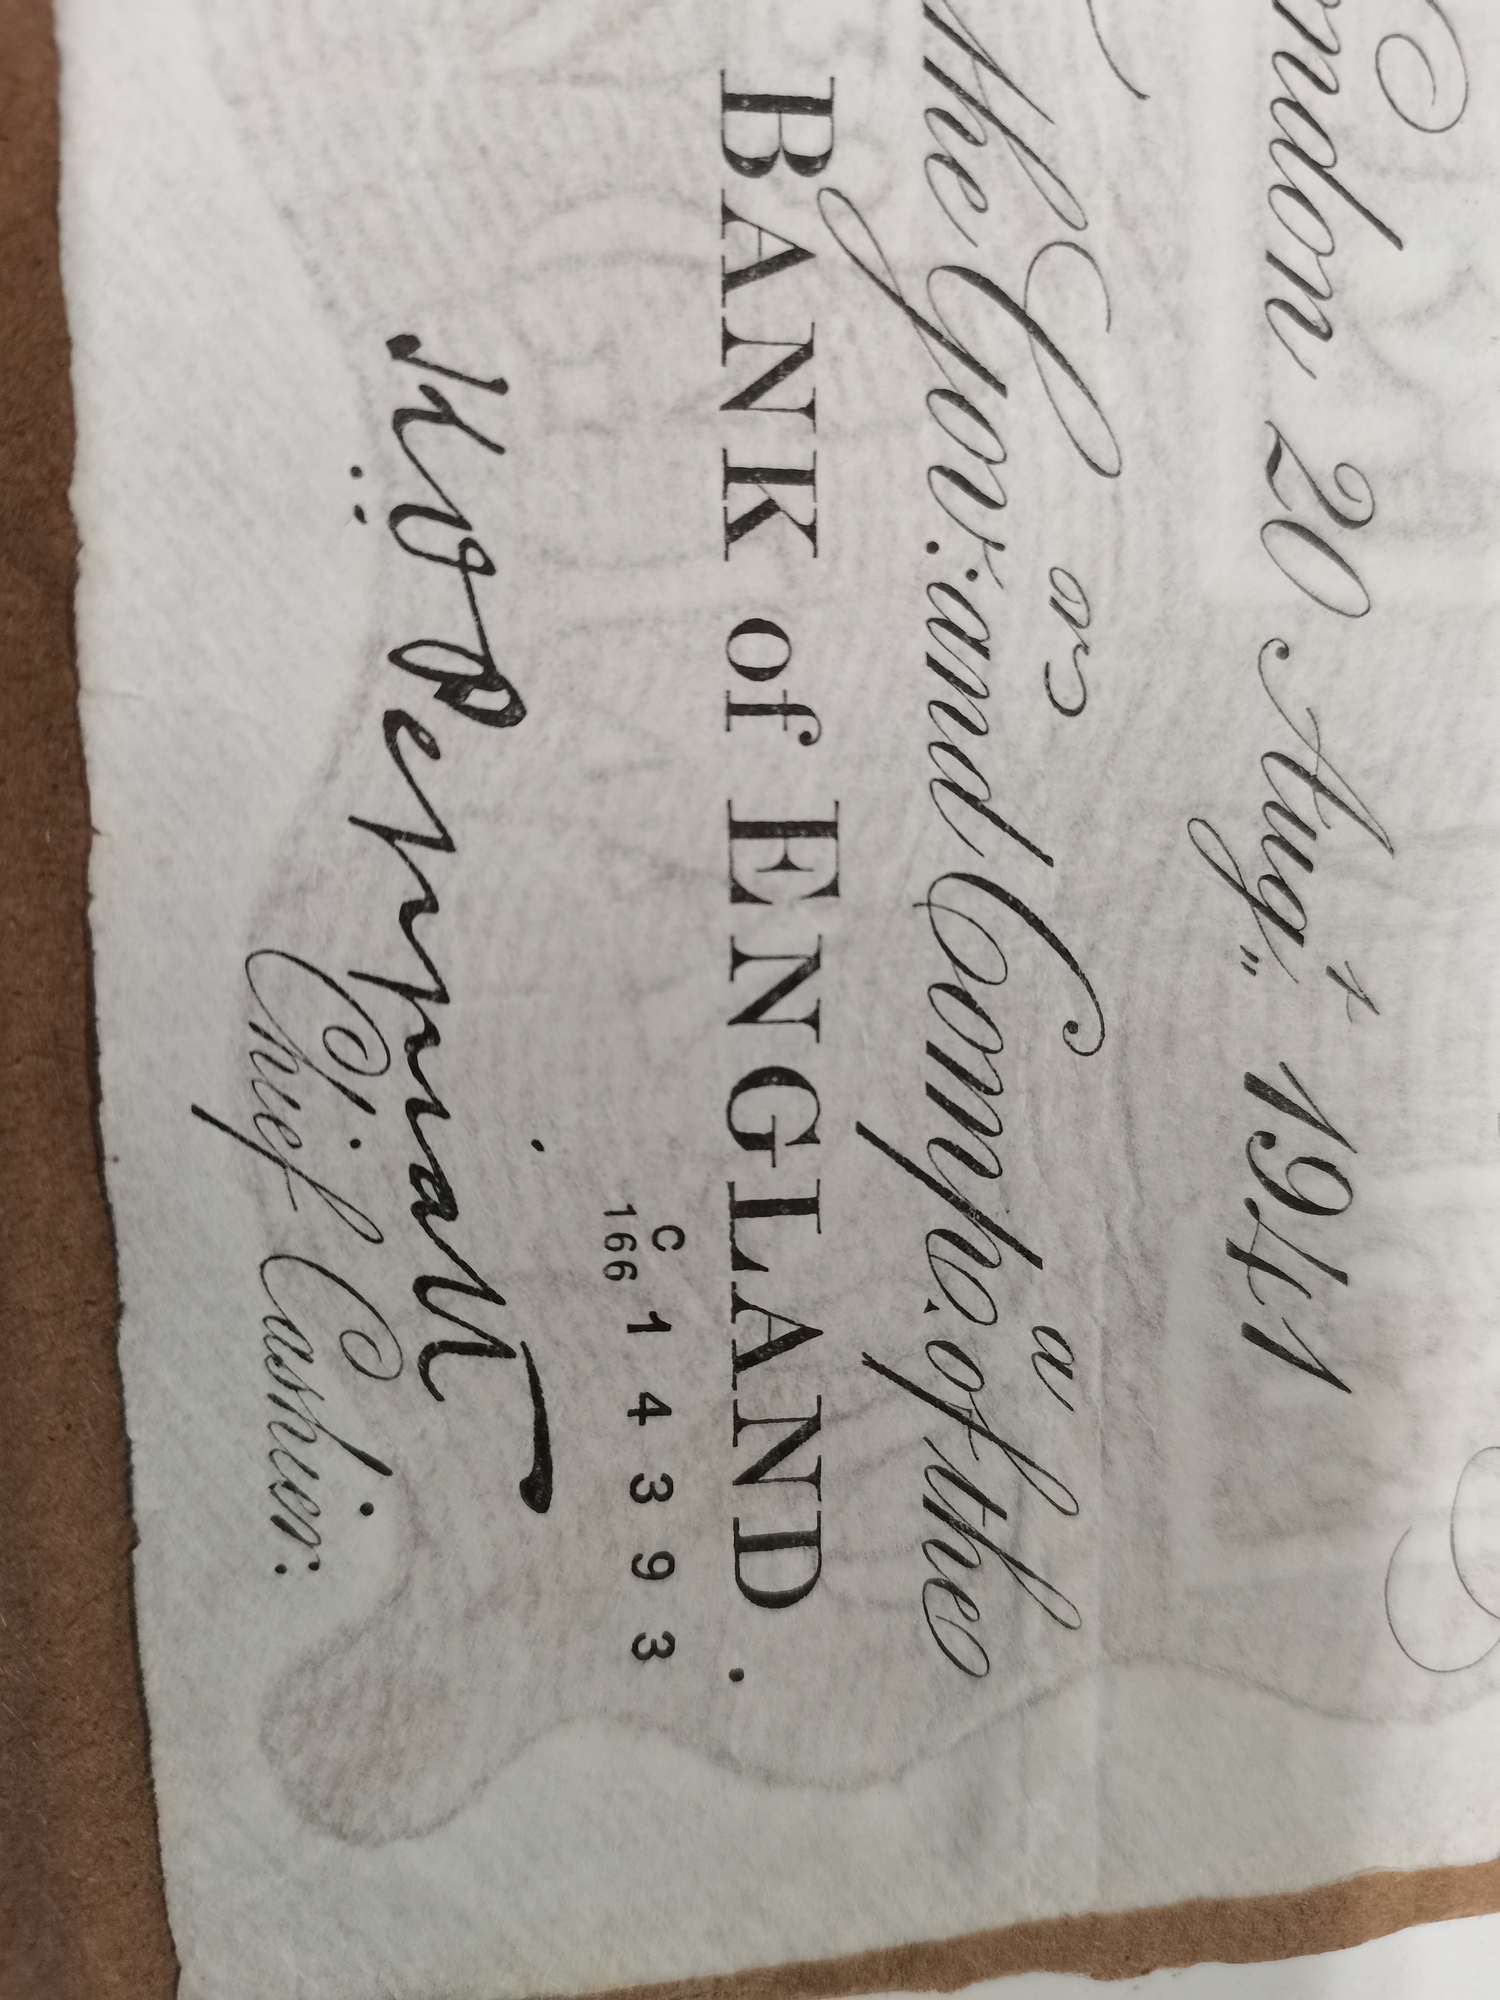 ndon 20 Augᵗ 1941
the Govʳ: and Compᵃ. of the
BANK of ENGLAND.
C
166 14393
K.O. Peppiatt
Chief Cashier.